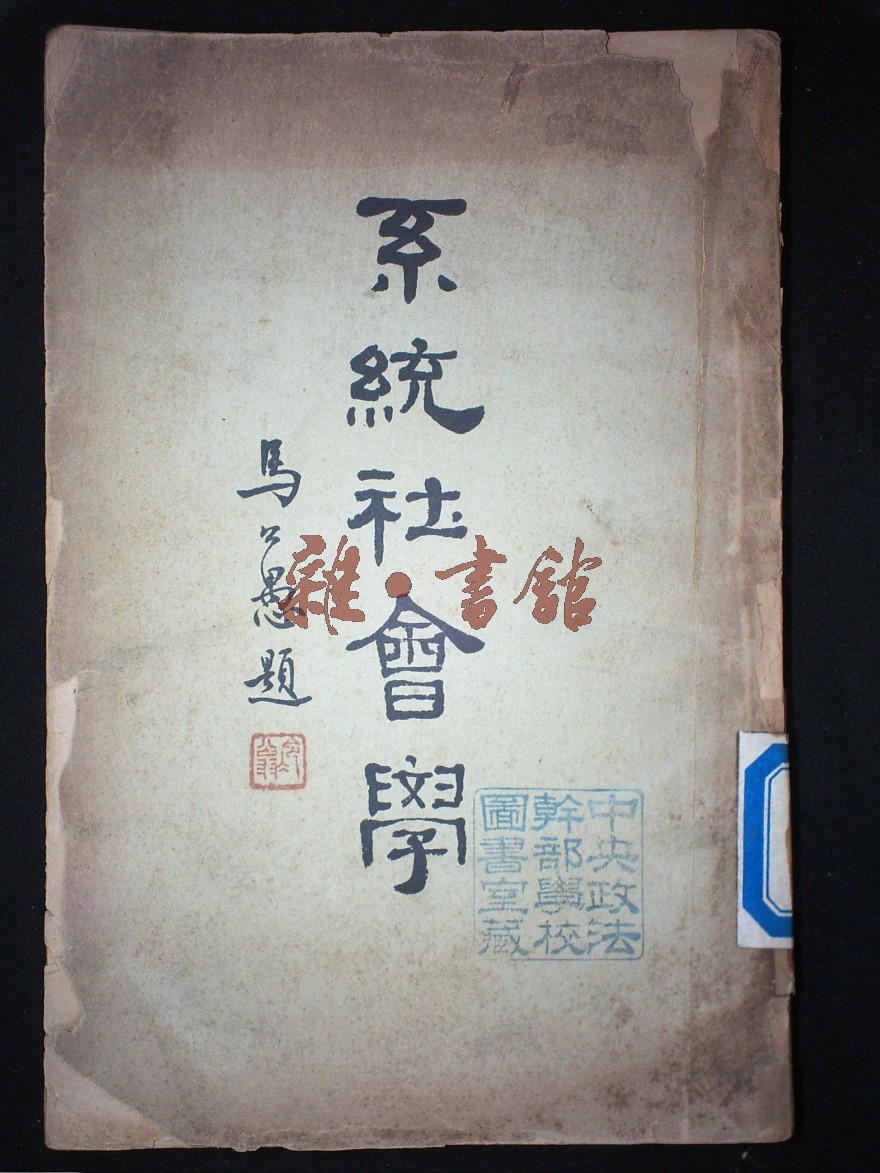 系統社會學
馬公愚題
雜·書館
中央政法
幹部學校
圖書室藏